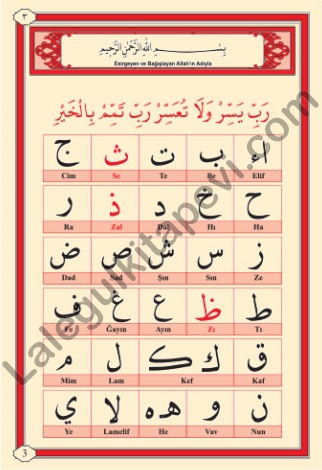 ٣
بِسْمِ اللهِ الرَّحْمٰنِ الرَّحِيمِ
Esirgeyen ve Bağışlayan Allah'ın Adıyla
رَبِّ يَسِّرْ وَلَا تُعَسِّرْ رَبِّ تَمِّمْ بِالْخَيْرِ
ا ء ب ت ث ج
Elif Be Te Se Cim
ح خ د ذ ر
Ha Hı Dal Zal Ra
ز س ش ص ض
Ze Sin Şın Sad Dad
ط ظ ع غ ف
Tı Zı Ayın Ğayın Fe
ق ك ک ل م
Kaf Kef Lam Mim
ن و ه ه لا ي
Nun Vav He Lamelif Ye
3
Lalegulkitapevi.com